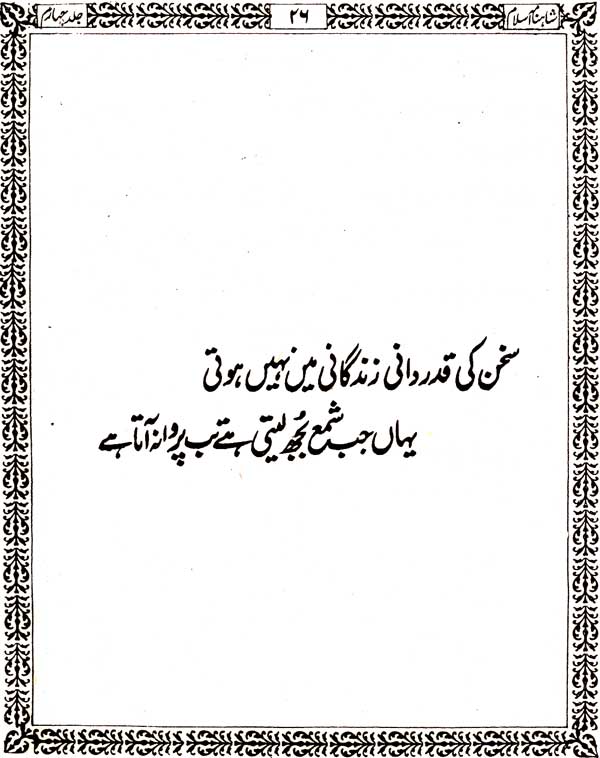 شاہنامۂ اسلام
۲۶
جلد چہارم
سخن کی قدر دانی زندگانی میں نہیں ہوتی
یہاں جب شمع بُجھ لیتی ہے تب پروانہ آتا ہے